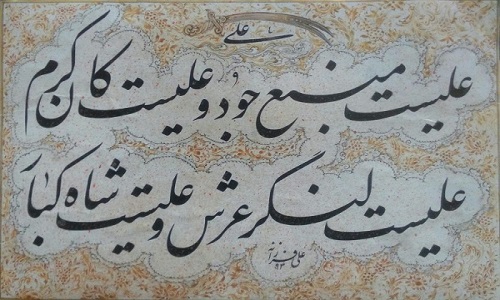 یا علی
علیست منبع جود و علیست کان کرم
علیست لنگر عرش و علیست شاه کبار
علی فرزانه